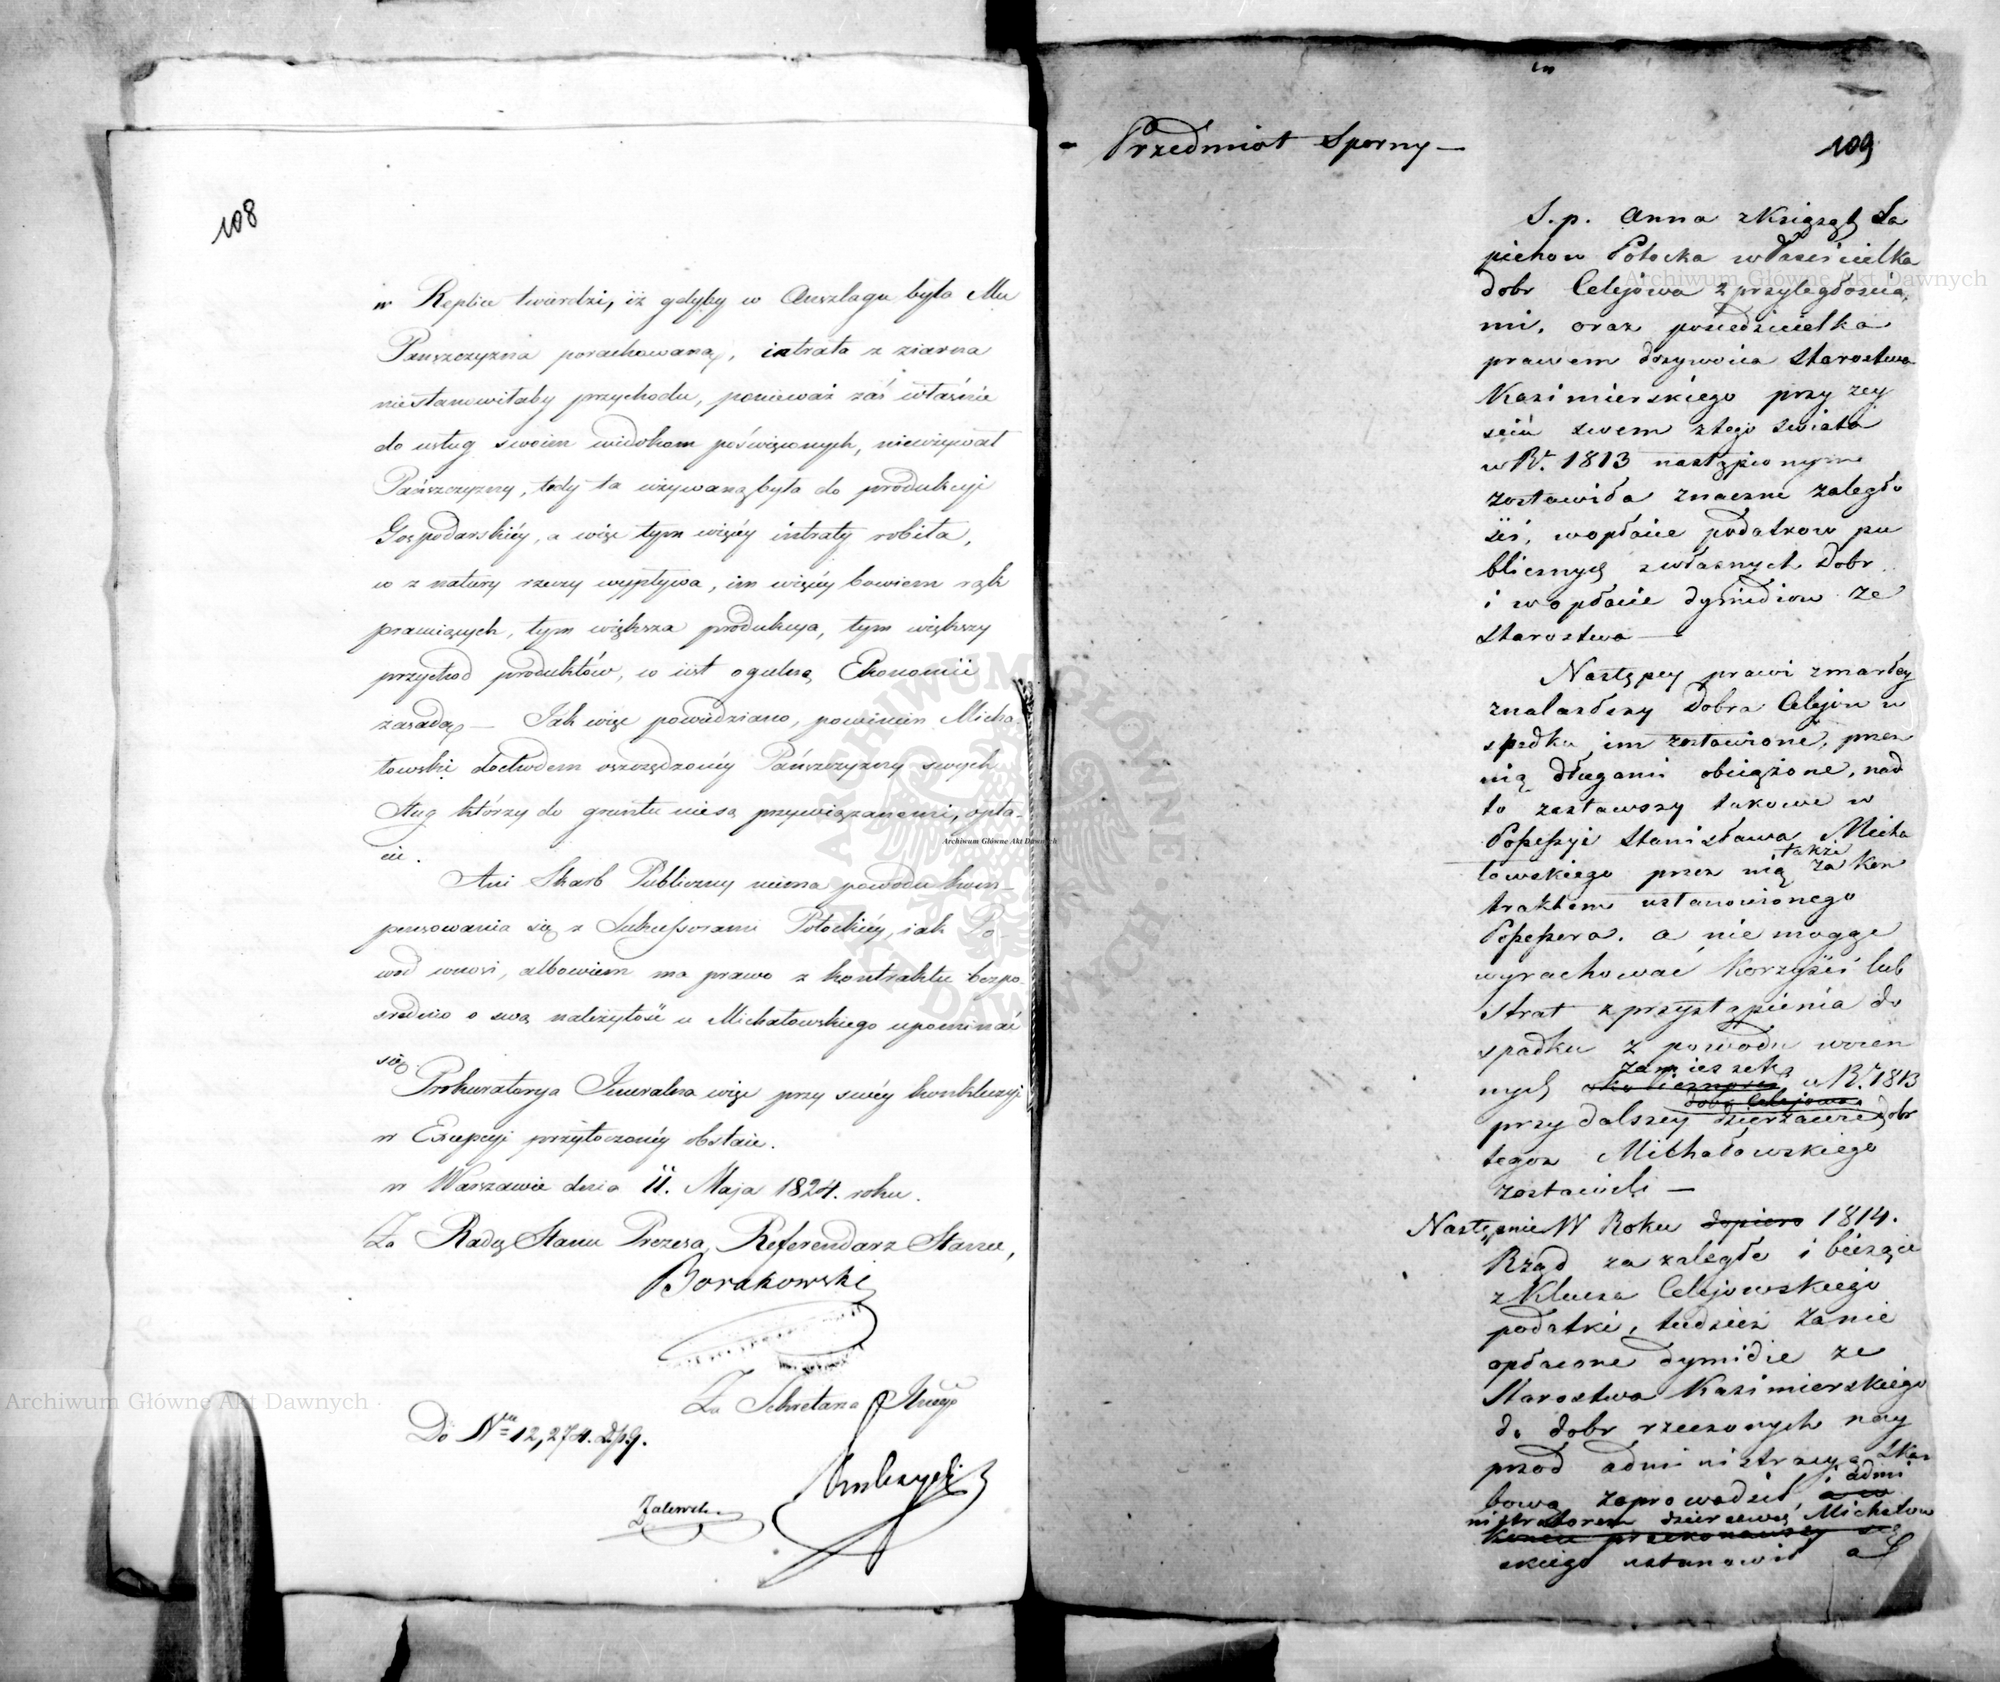 108
w Replice twierdzi, iż gdyby w Anszlagu była Mu
Pańszczyzna porachowaną, intrata z ziarna
niestanowiłaby przychodu, ponieważ zaś właśnie
do usług swoim widokom poświęconych, nieużywał
Pańszczyzny, tedy ta używaną była do produkcyi
Gospodarskiéy, a więc tym więcéy intraty robiła,
co z natury rzeczy wypływa, im więcéy bowiem rąk
pracuiących, tym większa produkcya, tym większy
przychod produktów, co iest ogulną Ekonomii
zasadą — Jak więc powiedziano, powinien Micha-
łowski dochodem oszczędzonéy Pańszczyzny swych
sług którzy do gruntu niesą przywiązanemi, opła-
cić.
Ani Skarb Publiczny niema powodu kom-
pensowania się z Sukcessorami Potockiéy, iak Po-
wod wnosi, albowiem ma prawo z kontraktu bezpo-
srednio o swą należytość u Michałowskiego upominać
się.
Prokuratorya Jeneralna więc przy swéy konkluzyi
w Excepcyi przytoczonéy obstaie.
w Warszawie dnia 11. Maja 1824. roku.
Za Radcę Stanu Prezesa, Referendarz Stanu,
Borakowski
Za Sekretarza
Do Nru 12,274.
Zalewski
109
Przedmiot Sporny —
S. p. Anna z Książąt Sa
piehow Potocka właścicielka
dobr Celejowa z przyległościa,
mi, oraz posiedzicielka
prawem dożywocia Starostwa
Kazimierskiego przy zey
sciu swem z tego świata
w Rk. 1813 nastąpionym
zostawiła znaczne zaległo
ści, w opłacie podatkow pu
blicznych z własnych Dobr
i w opłacie dymidiow ze
Starostwa —
Następcy prawi zmarłey
znalazłszy Dobra Celejow w
spadku im zostawione, przez
nią długami obciążone, nad
to zastawszy takowe w
Possessyi Stanisława Micha
także
łowskiego przez nią za kon
traktem ustanowionego
Possessora. a nie mogąc
wyrachować korzyści lub
strat z przystąpienia do
spadku z powodu woien
zamieszek
nych okoliczności, w Rk. 1813
dobr Celejowa
przy dalszey dzierżawie dobr
tegoż Michałowskiego
zostawili —
Następnie W Roku dopiero 1814.
Rząd za zaległe i bieżące
z Klucza Celejowskiego
podatki, tudzież za nie
opłacone dymidie ze
Starostwa Kazimierskiego
do dobr rzeczonych nay
przod administracyą Skar
i admi
bową zaprowadził, a w
nistratorem dzierżawcę Michałow
końcu przekonawszy się
skiego ustanowił a